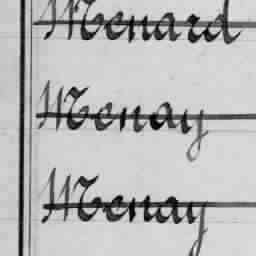 Menard
Menay
Menay